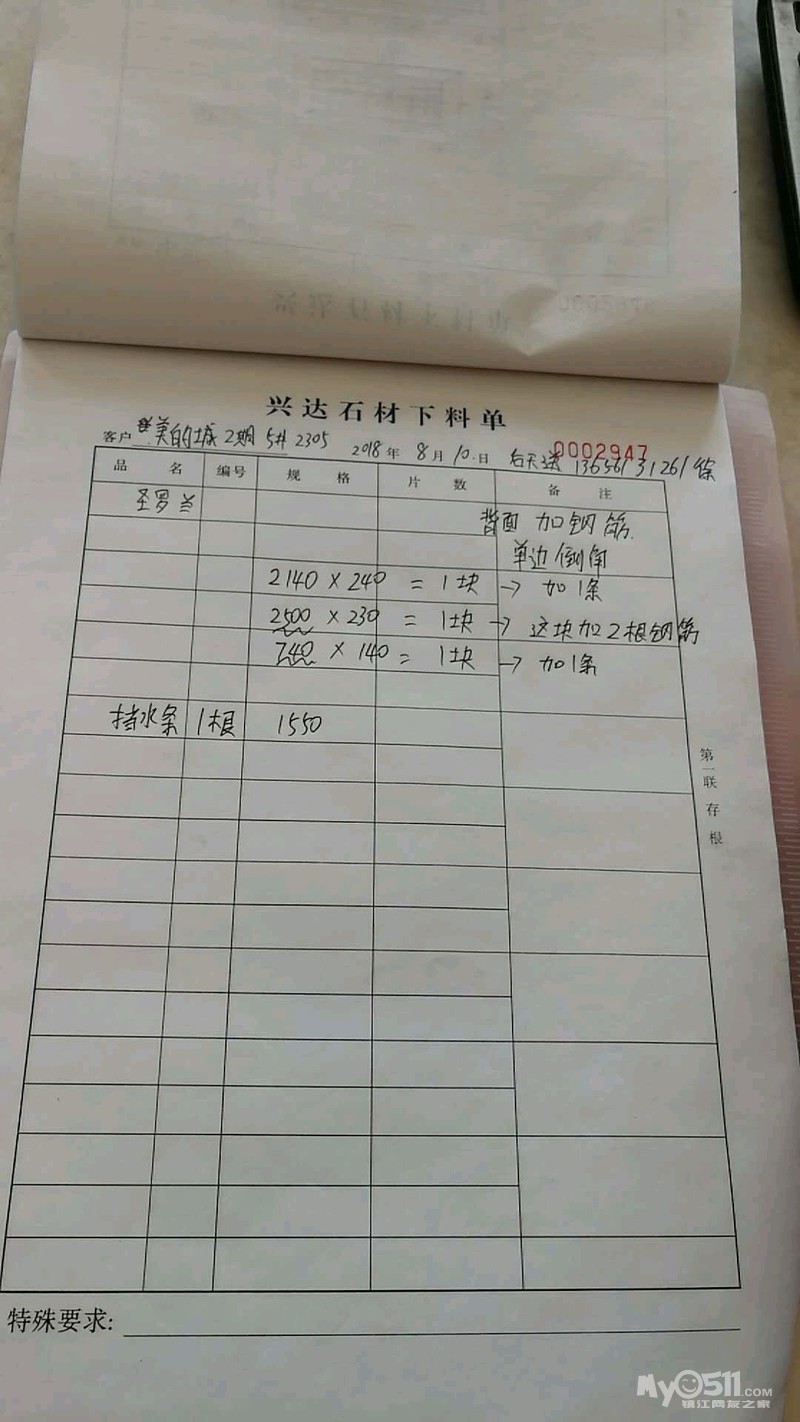 兴达石材下料单
客户 美的城2期 5# 2305 2018年8月10日 后天送 0002947 13656131261徐
品名 编号 规格 片数 备注
圣罗兰 背面加钢筋.
单边倒角
2140 × 240 = 1块 → 加1条
2500 × 230 = 1块 → 这块加2根钢筋
740 × 140 = 1块 → 加1条
挡水条 1根 1550
第一联 存根
特殊要求:
My0511.com
镇江网友之家